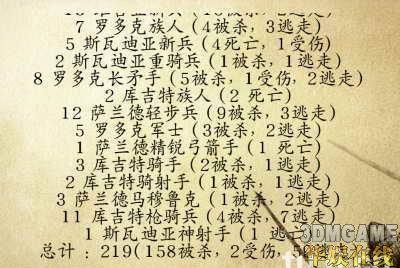 7 罗多克族人 (4被杀, 3逃走)
5 斯瓦迪亚新兵 (4死亡, 1受伤)
2 斯瓦迪亚重骑兵 (1被杀, 1逃走)
8 罗多克长矛手 (5被杀, 1受伤, 2逃走)
2 库吉特族人 (2 死亡)
12 萨兰德轻步兵 (9被杀, 3逃走)
5 罗多克军士 (3被杀, 2逃走)
1 萨兰德精锐弓箭手 (1 死亡)
3 库吉特骑手 (2被杀, 1逃走)
2 库吉特骑射手 (1被杀, 1逃走)
3 萨兰德马穆鲁克 (1被杀, 2逃走)
11 库吉特枪骑兵 (4被杀, 7逃走)
1 斯瓦迪亚神射手 (1 逃走)
总计 : 219(158被杀, 2受伤, 逃走
3DMGAME